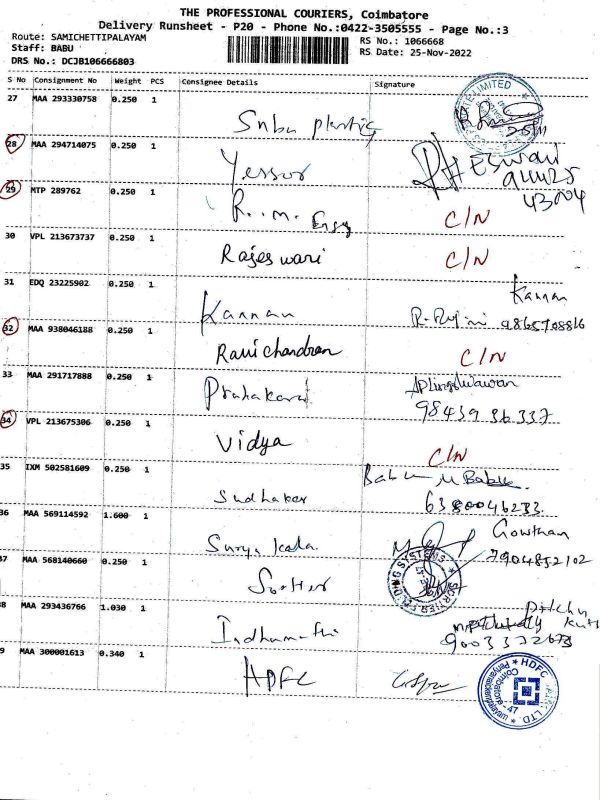 THE PROFESSIONAL COURIERS, Coimbatore
Delivery Runsheet - P20 - Phone No.:0422-3505555 - Page No.:3
Route: SAMICHETTIPALAYAM
RS No.: 1066668
Staff: BABU
RS Date: 25-Nov-2022
DRS No.: DCJB106666803
S No Consignment No Weight PCS Consignee Details Signature
27 MAA 293330758 0.250 1
plastic
28 MAA 294714075 0.250 1
Eswari
29 MTP 289762 0.250 1
R.m. C/N
30 VPL 213673737 0.250 1
Rajeswari C/N
31 EDQ 23225902 0.250 1
Kannan
Kannan 9865708816
32 MAA 938046188 0.250 1
Ravichandran C/N
33 MAA 291717888 0.250 1
98439 36337
34 VPL 213675306 0.250 1
Vidya C/N
35 IXM 502581609 0.250 1
Sudhaker
6380046233
36 MAA 569114592 1.600 1
Gowthan
Surya kala 7904852102
37 MAA 568140660 0.250 1
38 MAA 293436766 1.030 1
Indhumathi
39 MAA 300001613 0.340 1
HDFC
HDFC
Coimbatore - 47